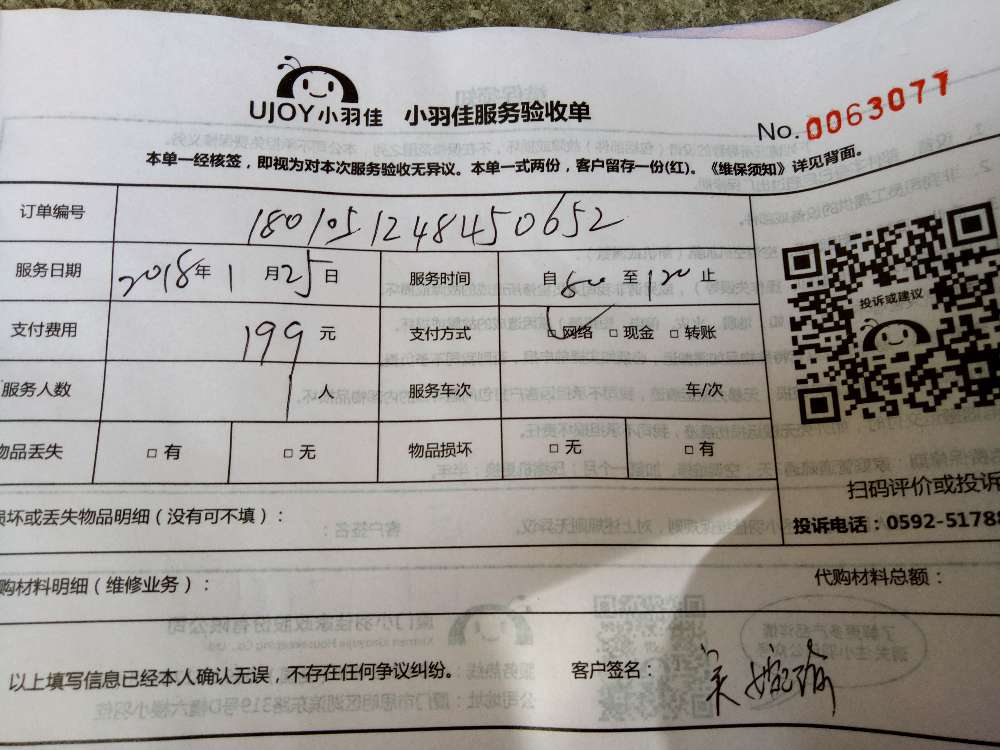 UJOY小羽佳 小羽佳服务验收单
No. 0063077
本单一经核签，即视为对本次服务验收无异议。本单一式两份，客户留存一份(红)。《维保须知》详见背面。
订单编号 1801051248450652
服务日期 2018年1月25日 服务时间 自 800 至 1200 止
支付费用 199元 支付方式 □网络 □现金 □转账
服务人数 1人 服务车次 车/次
物品丢失 □有 □无 物品损坏 □无 □有
投诉或建议
扫码评价或投诉
投诉电话：0592-51788
损坏或丢失物品明细（没有可不填）：
购材料明细（维修业务）： 代购材料总额：
以上填写信息已经本人确认无误，不存在任何争议纠纷。 客户签名： 吴婉瑜